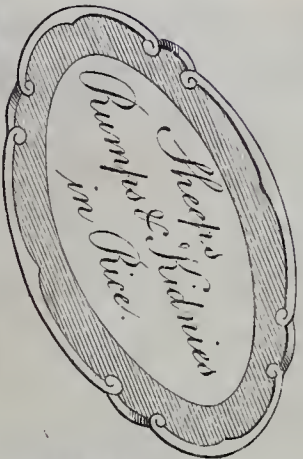 Sheeps
Rumps & Kidnies
in Rice.